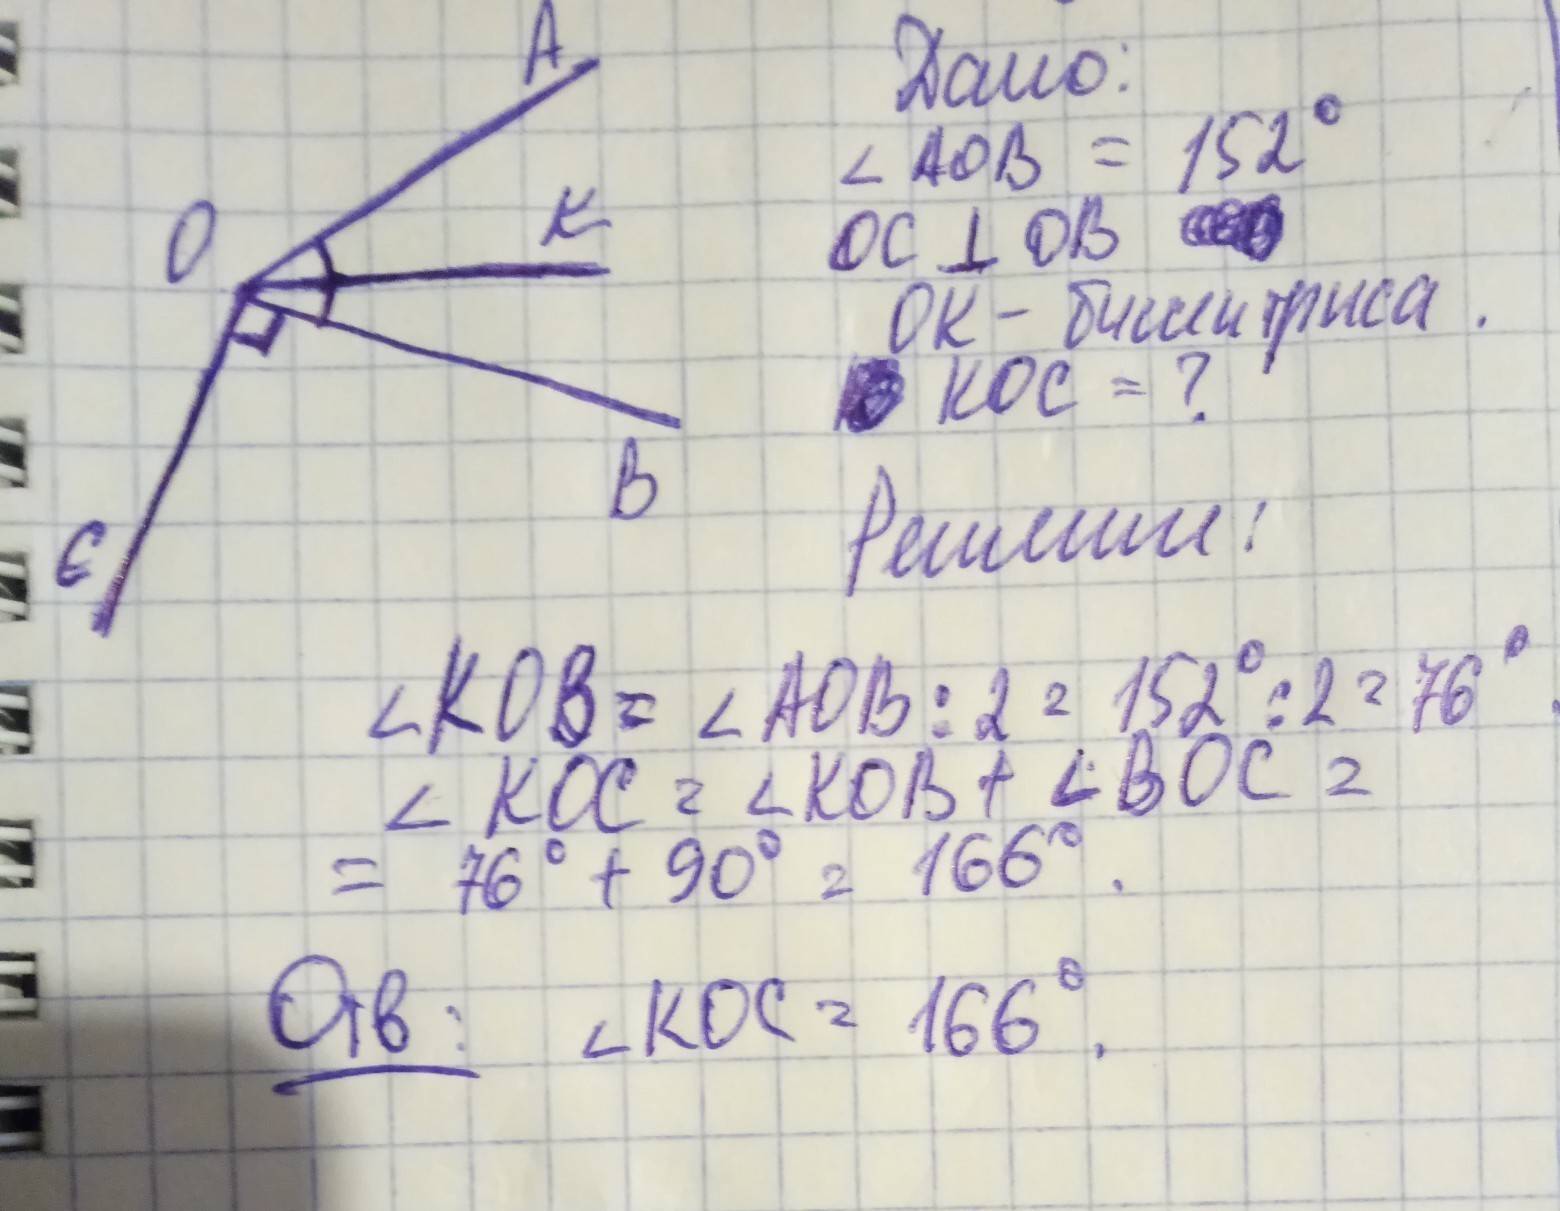 A
O
K
B
C
Дано:
∠AOB = 152°
OC ⊥ OB
OK - биссектриса.
KOC = ?
Решение:
∠KOB = ∠AOB : 2 = 152° : 2 = 76°.
∠KOC = ∠KOB + ∠BOC =
= 76° + 90° = 166°.
Отв: ∠KOC = 166°.